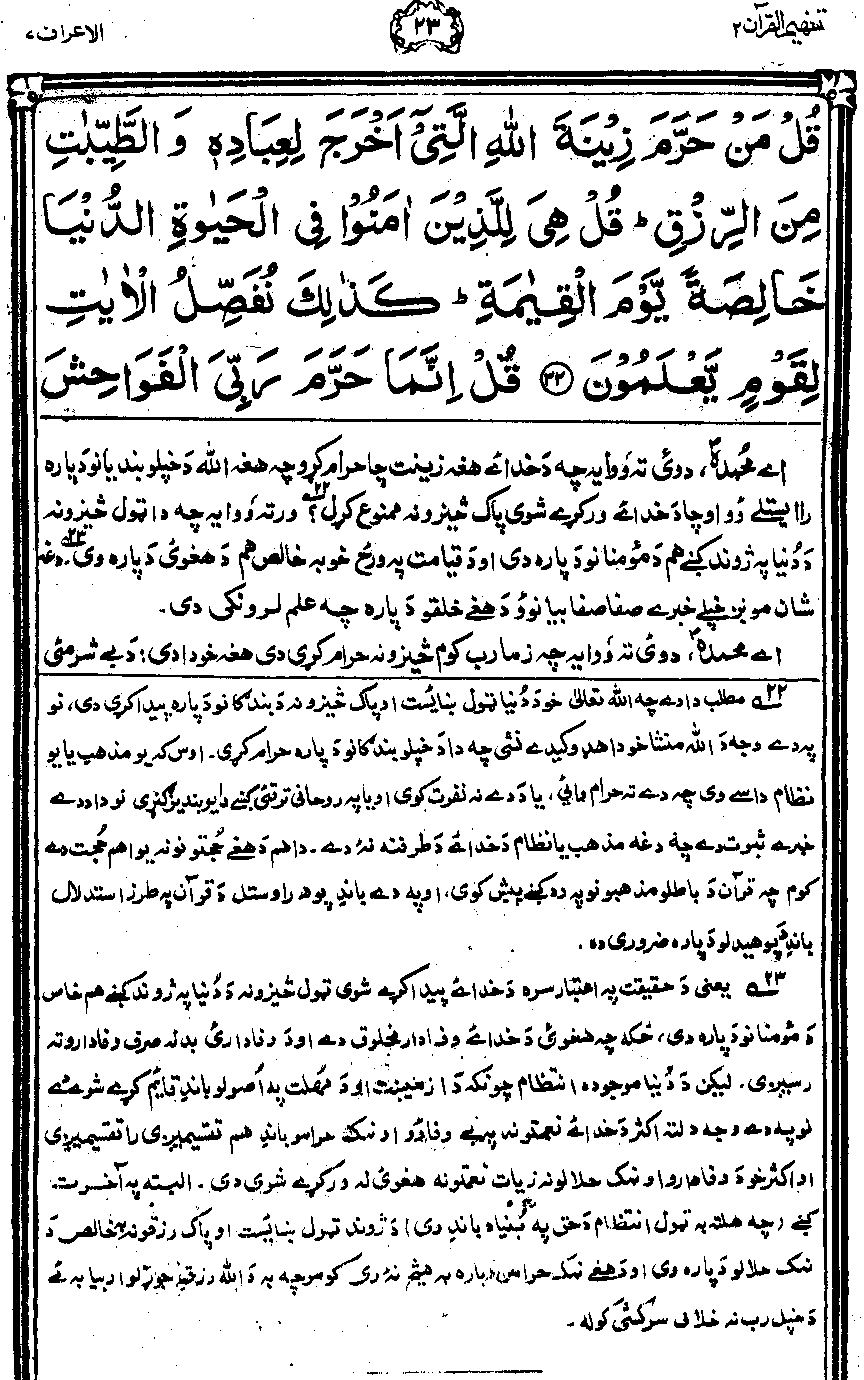 تفهيم القرآن ۲
۲۳
الاعراف ۷
قُلْ مَنْ حَرَّمَ زِيْنَةَ اللهِ الَّتِيْٓ اَخْرَجَ لِعِبَادِهٖ وَالطَّيِّبٰتِ
مِنَ الرِّزْقِ ؕ قُلْ هِىَ لِلَّذِيْنَ اٰمَنُوْا فِى الْحَيٰوةِ الدُّنْيَا
خَالِصَةً يَّوْمَ الْقِيٰمَةِ ؕ كَذٰلِكَ نُفَصِّلُ الْاٰيٰتِ
لِقَوْمٍ يَّعْلَمُوْنَ ۳۲ قُلْ اِنَّمَا حَرَّمَ رَبِّىَ الْفَوَاحِشَ
اے محمدهؐ، دوئ ته ووايه چه دَ خدائے هغه زينت چا حرام کړو چه هغه الله دَ خپلو بنديانو دَ پاره
را ايستلے وو او چا دَ خدائے ورکړے شوى پاک څيزونه ممنوع کړل؟ ۲۲ ورته ووايه چه دا ټول څيزونه
دَ دُنيا په ژوند کښے هم دَ مؤمنانو دَ پاره دى او دَ قيامت په ورځ خو به خالص هم دَ هغوئ دَ پاره وى۔ ۲۳ دغه
شان مونږ خپلے خبرے صفا صفا بيانوؤ دَ هغے خلقو دَ پاره چه علم لرونکى دى۔
اے محمدهؐ، دوئ ته ووايه چه زما رب کوم څيزونه حرام کړى دى هغه خو دا دى؛ دَ بے شرمئ
۲۲ مطلب دا دے چه الله تعالىٰ خو دَ دُنيا ټول ښائست او پاک څيزونه دَ بندګانو دَ پاره پيدا کړى دى، نو
په دے وجه دَ الله منشا خو دا هډو کيدے نشى چه دا دَ خپلو بندګانو دَ پاره حرام کړى۔ اوس که يو مذهب يا يو
نظام داسے وى چه دے ته حرام وائى، يا دَ دے نه نفرت کوى او يا په روحانى ترقئ کښے دا يو بنديز ګنړى نو دا دَ دے
خبرے ثبوت دے چه دغه مذهب يا نظام دَ خدائے دَ طرفنه نهٔ دے۔ دا هم دَ هغے حُجتونو نه يو اهم حُجت دے
کوم چه قرآن دَ باطلو مذهبونو په رد کښے پيش کوى، او په دے باندِ پوهه راوستل دَ قرآن په طرز استدلال
باندِ پوهيدلو دَ پاره ضرورى ده۔
۲۳ يعنى دَ حقيقت په اعتبار سره دَ خدائے پيدا کړے شوى ټول څيزونه دَ دُنيا په ژوند کښے هم خاص
دَ مؤمنانو دَ پاره دى، ځکه چه هغوئ دَ خدائے وفادار مخلوق دے او دَ وفادارئ بدله صرف وفادارو ته
رسيږى۔ ليکن دَ دُنيا موجوده انتظام چونکه دَ ازميښت او دَ مُهلت په اُصولو باندِ قايم کړے شوے دے
نو په دے وجه دلته اکثر دَ خدائے نعمتونه په بے وفاؤو او نمک حرامو باندِ هم تقسيميږى را تقسيميږى
او اکثر خو دَ وفادارو او نمک حلالو نه زيات نعمتونه هغوئ له ورکړے شوى دى۔ البته په آخرت
کښے (چه هلته به ټول انتظام دَ حق په بُنياد باندِ وى) دَ ژوند ټول ښائست او پاک رزقونه به خالص دَ
نمک حلالو دَ پاره وى او دَ هغے نمک حرامو دَ پاره به هيڅ نهٔ وى کومو چه به دَ الله رزق خوړلو او بيا به ئے
دَ خپل رب نه خلاف سرکشى کوله۔